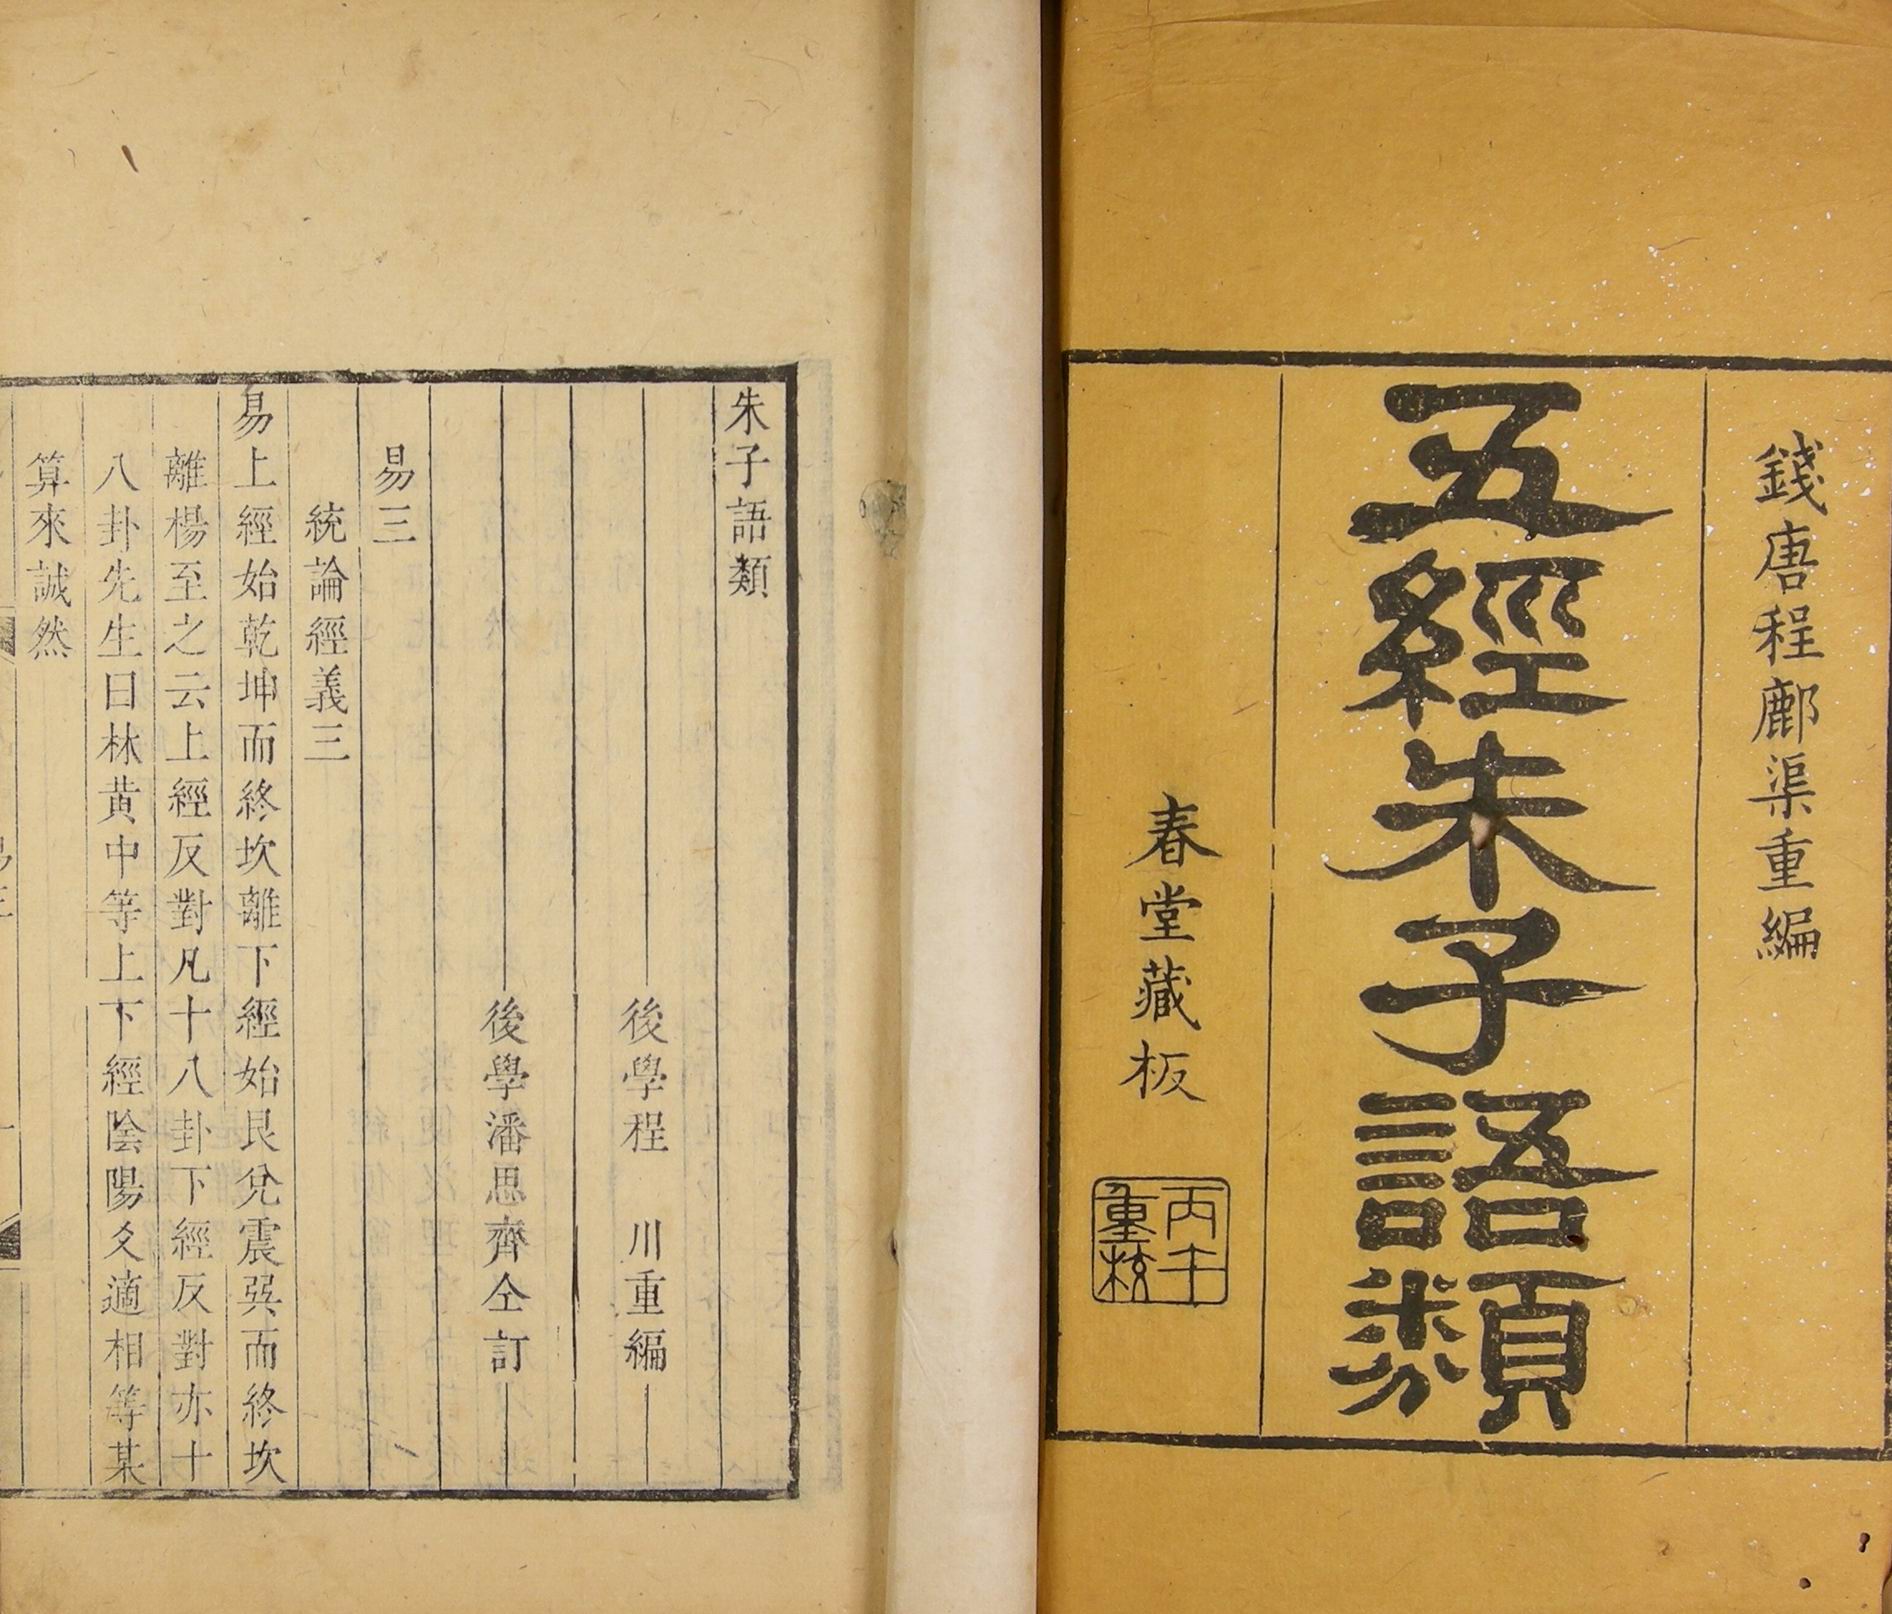 錢唐程鄜渠重編
五經朱子語類
春堂藏板
丙午
重校
朱子語類
後學程　川重編
後學潘思齊仝訂
易三
統論經義三
易上經始乾坤而終坎離下經始艮兌震巽而終坎
離楊至之云上經反對凡十八卦下經反對亦十
八卦先生曰林黃中等上下經陰陽爻適相等某
算來誠然